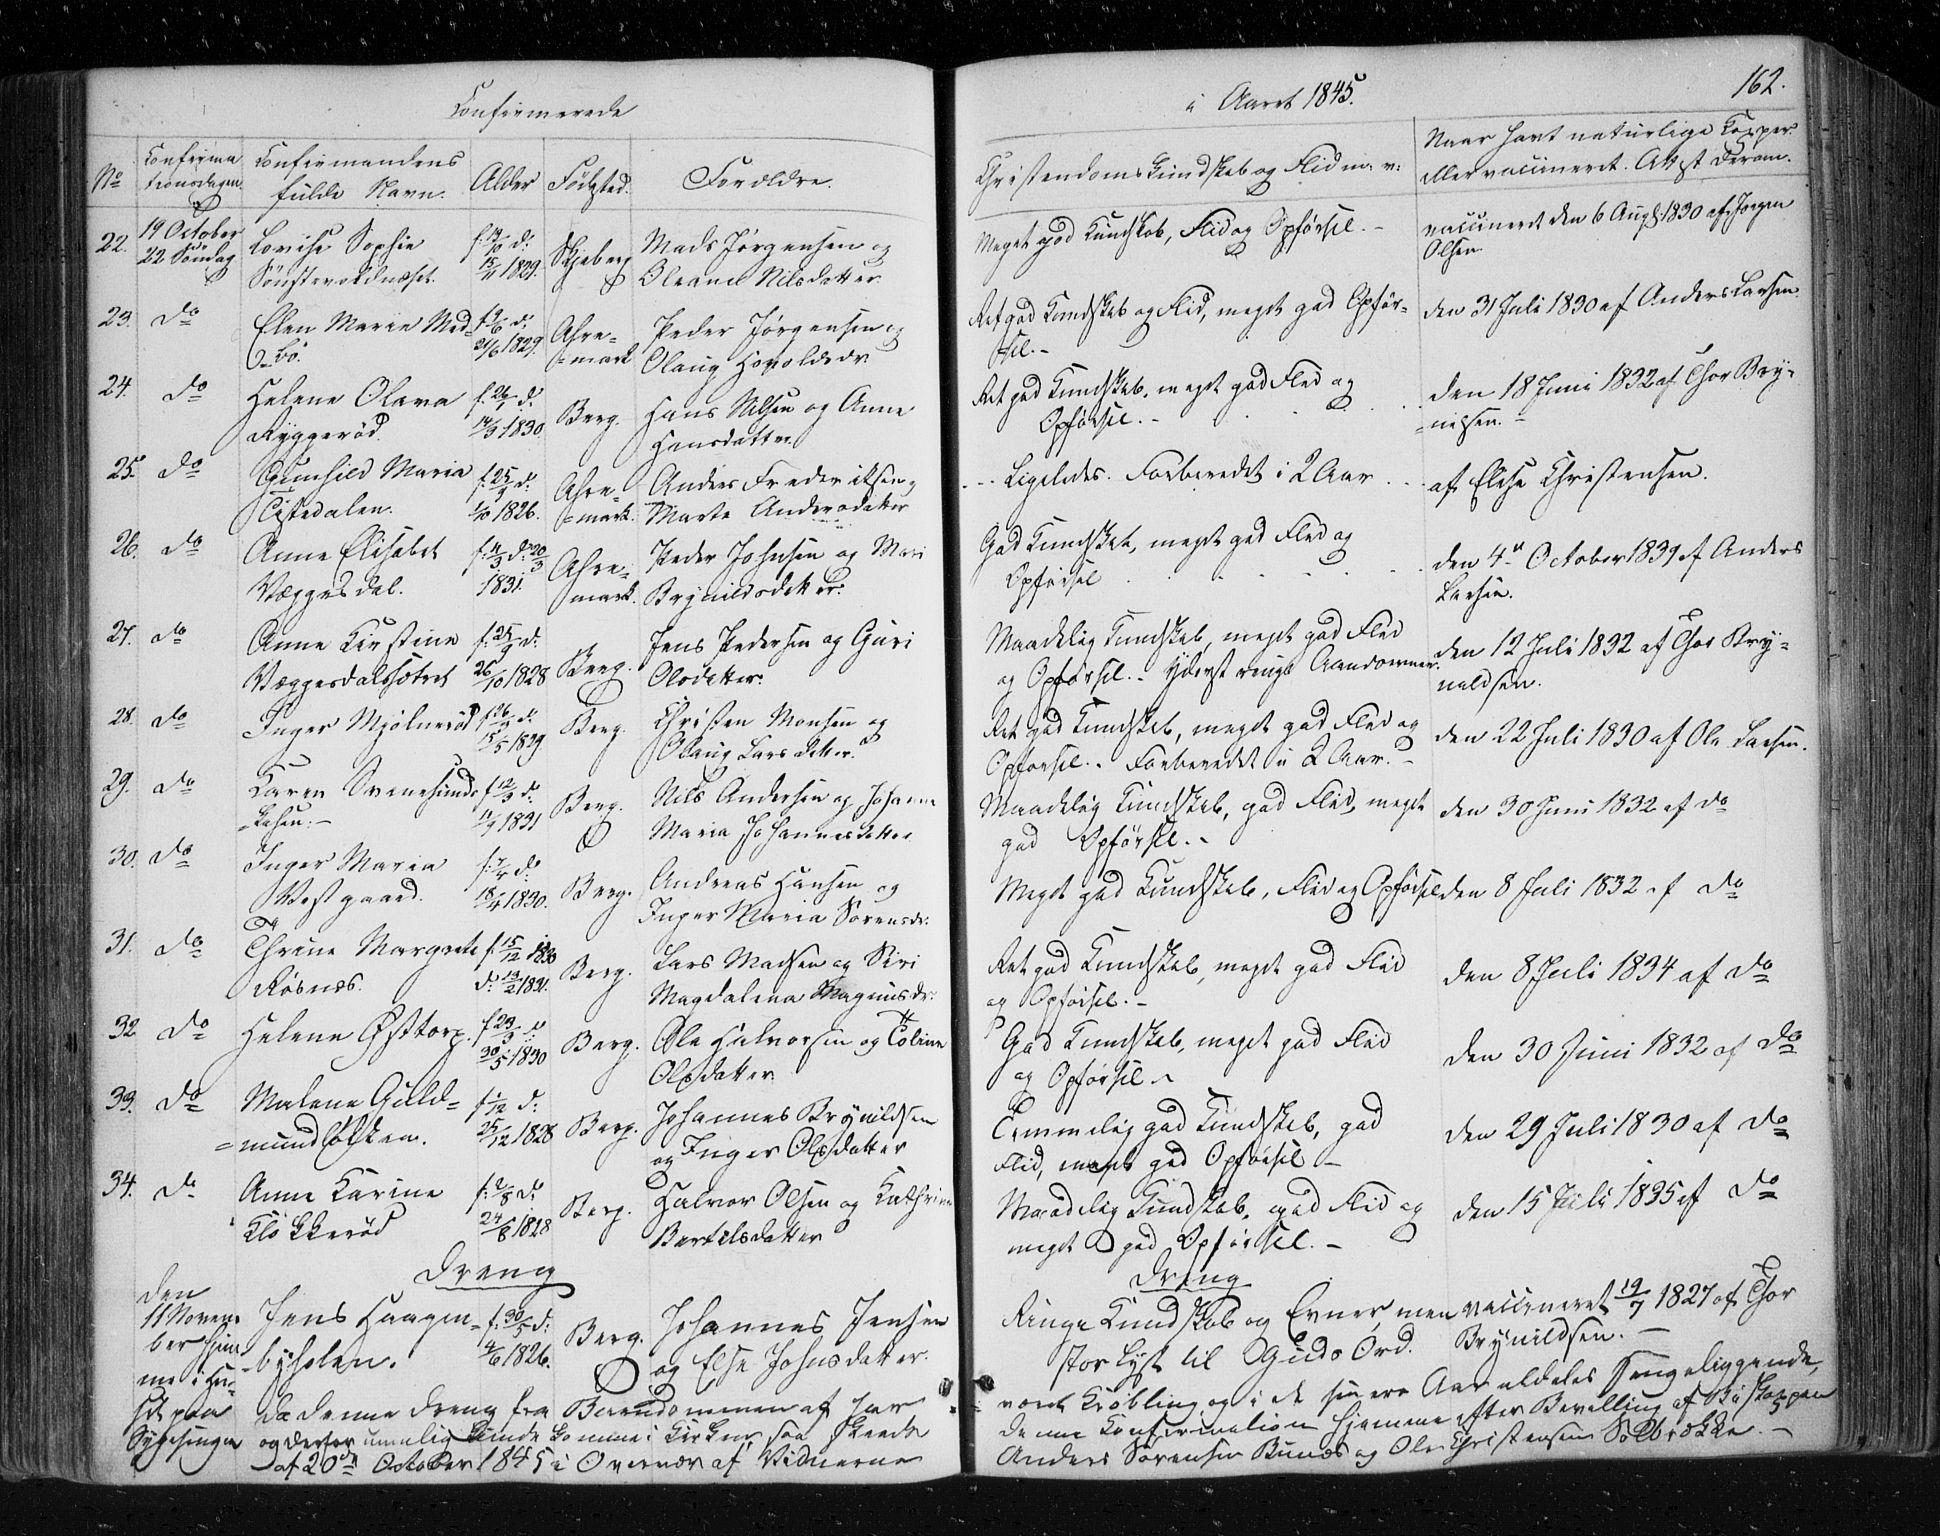 Confirmerede
i Aaret 1845.
162.
No
Confirma
tionsdagen
Confirmandens
fulde Navn.
Alder
Fødested.
Forældre.
Christendoms Kundskab og Flid m. v:
Naar havt naturlige Kopper
eller vaccineret. Attest derom.
22.
19 October
22 Søndag
Lovise Sophie
f. 19/10 d:
15/11 1829.
Skjeberg
Mads Jørgensen og
Oleane Nilsdatter
Meget god Kundskab, Flid og Opførsel. -
vaccineret den 6 Augs: 1830 af Jørgen
Olsen.
23. do
Elen Maria
1829.
Ahre=
=mark
Peder Jørgensen og
Olaug
Ret god Kundskab og Flid, meget god Opfør-
sel. -
den 31 Juli 1830 af Anders Larsen
24. do
Helene Olava
Ryggerød.
f. 26/1 d.
14/3 1830
Berg.
Hans Nilsen og Anne
Hansdatter
Ret god Kundskab, meget god Flid og
Opførsel. -
den 18 Juni 1832 af Thor Bry-
25. do
Gunhild Maria
Tistedalen.
f. 25/9 d:
1/10 1826.
Ahre=
=mark.
Anders Frederiksen,
Marte Andersdatter
Ligeledes. Forberedt i 2 Aar
af Elise Christensen.
26. do
Anne Elisabet
Væggesdal.
f. 4/3 d: 20/3
1831.
Ahre=
mark.
Peder Johnsen og Mari
Brynildsdatter:
God Kundskab, meget god Flid og
Opførsel
den 4de October 1839 af Anders
Larsen.
27. do
Anne Kirstine
Væggesdalssætret
f. 25/9 d:
26/10 1828
Berg.
Jens Pedersen og Guri
Olsdatter.
Maadelig Kundskab, meget god Flid
og Opførsel. - Yderst ringe Aandsevner.
den 12 Juli 1832 af Thor Bry=
nildsen.
28. do
Inger Mjølnerød
1829
Berg.
Christen Monsen og
Olaug Larsdatter.
Ret god Kundskab, meget god Flid og
Opførsel. - Forberedt i 2 Aar. -
den 22 Juli 1830 af Ole Larsen.
29. do
Karen Svenesunds
=
f. 12/3 d.
1831
Berg.
Nils Andersen og Johanne
Maria Johannesdatter
Maadelig Kundskab, god Flid, meget
god Opførsel. -
den 30 Juni 1832 af do
30. do
Inger Maria
Vestgaard.
18/4 1830.
Berg.
Andreas Hansen og
Inger Maria Sørensdr:
Meget god Kundskab, Flid og Opførsel
den 8 Juli 1832 af do
31. do
Thrine Margrete
Røsnæs.
f. 15/12 1830
d: 13/2 1831.
Berg.
Lars Madsen og Siri
Magdalena Magnusdr:
Ret god Kundskab, meget god Flid
og Opførsel. -
den 8 Juli 1834 af do
32 do
Helene Østtorp.
f. 23/3 d
30/5 1830
Berg.
Ole Halvorsen og Toline
Olsdatter
God Kundskab, meget god Flid
og Opførsel -
den 30 Juni 1832 af do
33. do
Malene Guld=
=mundløkken.
f. 1/12 d:
25/12 1828
Berg.
Johannes Brynildsen
og Inger Olsdatter
Temmelig god Kundskab, god
Flid, meget god Opførsel -
den 29 Juli 1830 af do
34. do
Anne Karine
Klokkerød
f. 2/8 d:
24/8 1828
Berg.
Halvor Olsen og Kathrine
Bertelsdatter
Maadelig Kundskab, god Flid og
meget god Opførsel. -
den 15 Juli 1835 af do
Dreng
Dreng
den
11 Novem
ber hjem
me i Hu=
set paa
Sygesengen
Jens Haagen=
=byholen.
f. 30/5 d:
4/6 1826.
Berg.
Johannes Jensen
og Else Johnsdatter.
Ringe Kundskab og Evner, men
stor Lyst til Guds Ord.
vaccineret 19/7 1827 af Thor
Brynildsen. -
Da denne Dreng fra Barndommen af har
været Krøbling og i de senere Aar aldeles sengeliggende,
og derfor umulig kunde komme i Kirken, saa skeede
denne Confirmation hjemme efter Bevilling af Biskoppen
af 20de October 1845 i Overvær af Vidnerne
Anders Sørensen Bunæs og Ole Christensen Solbrække. -